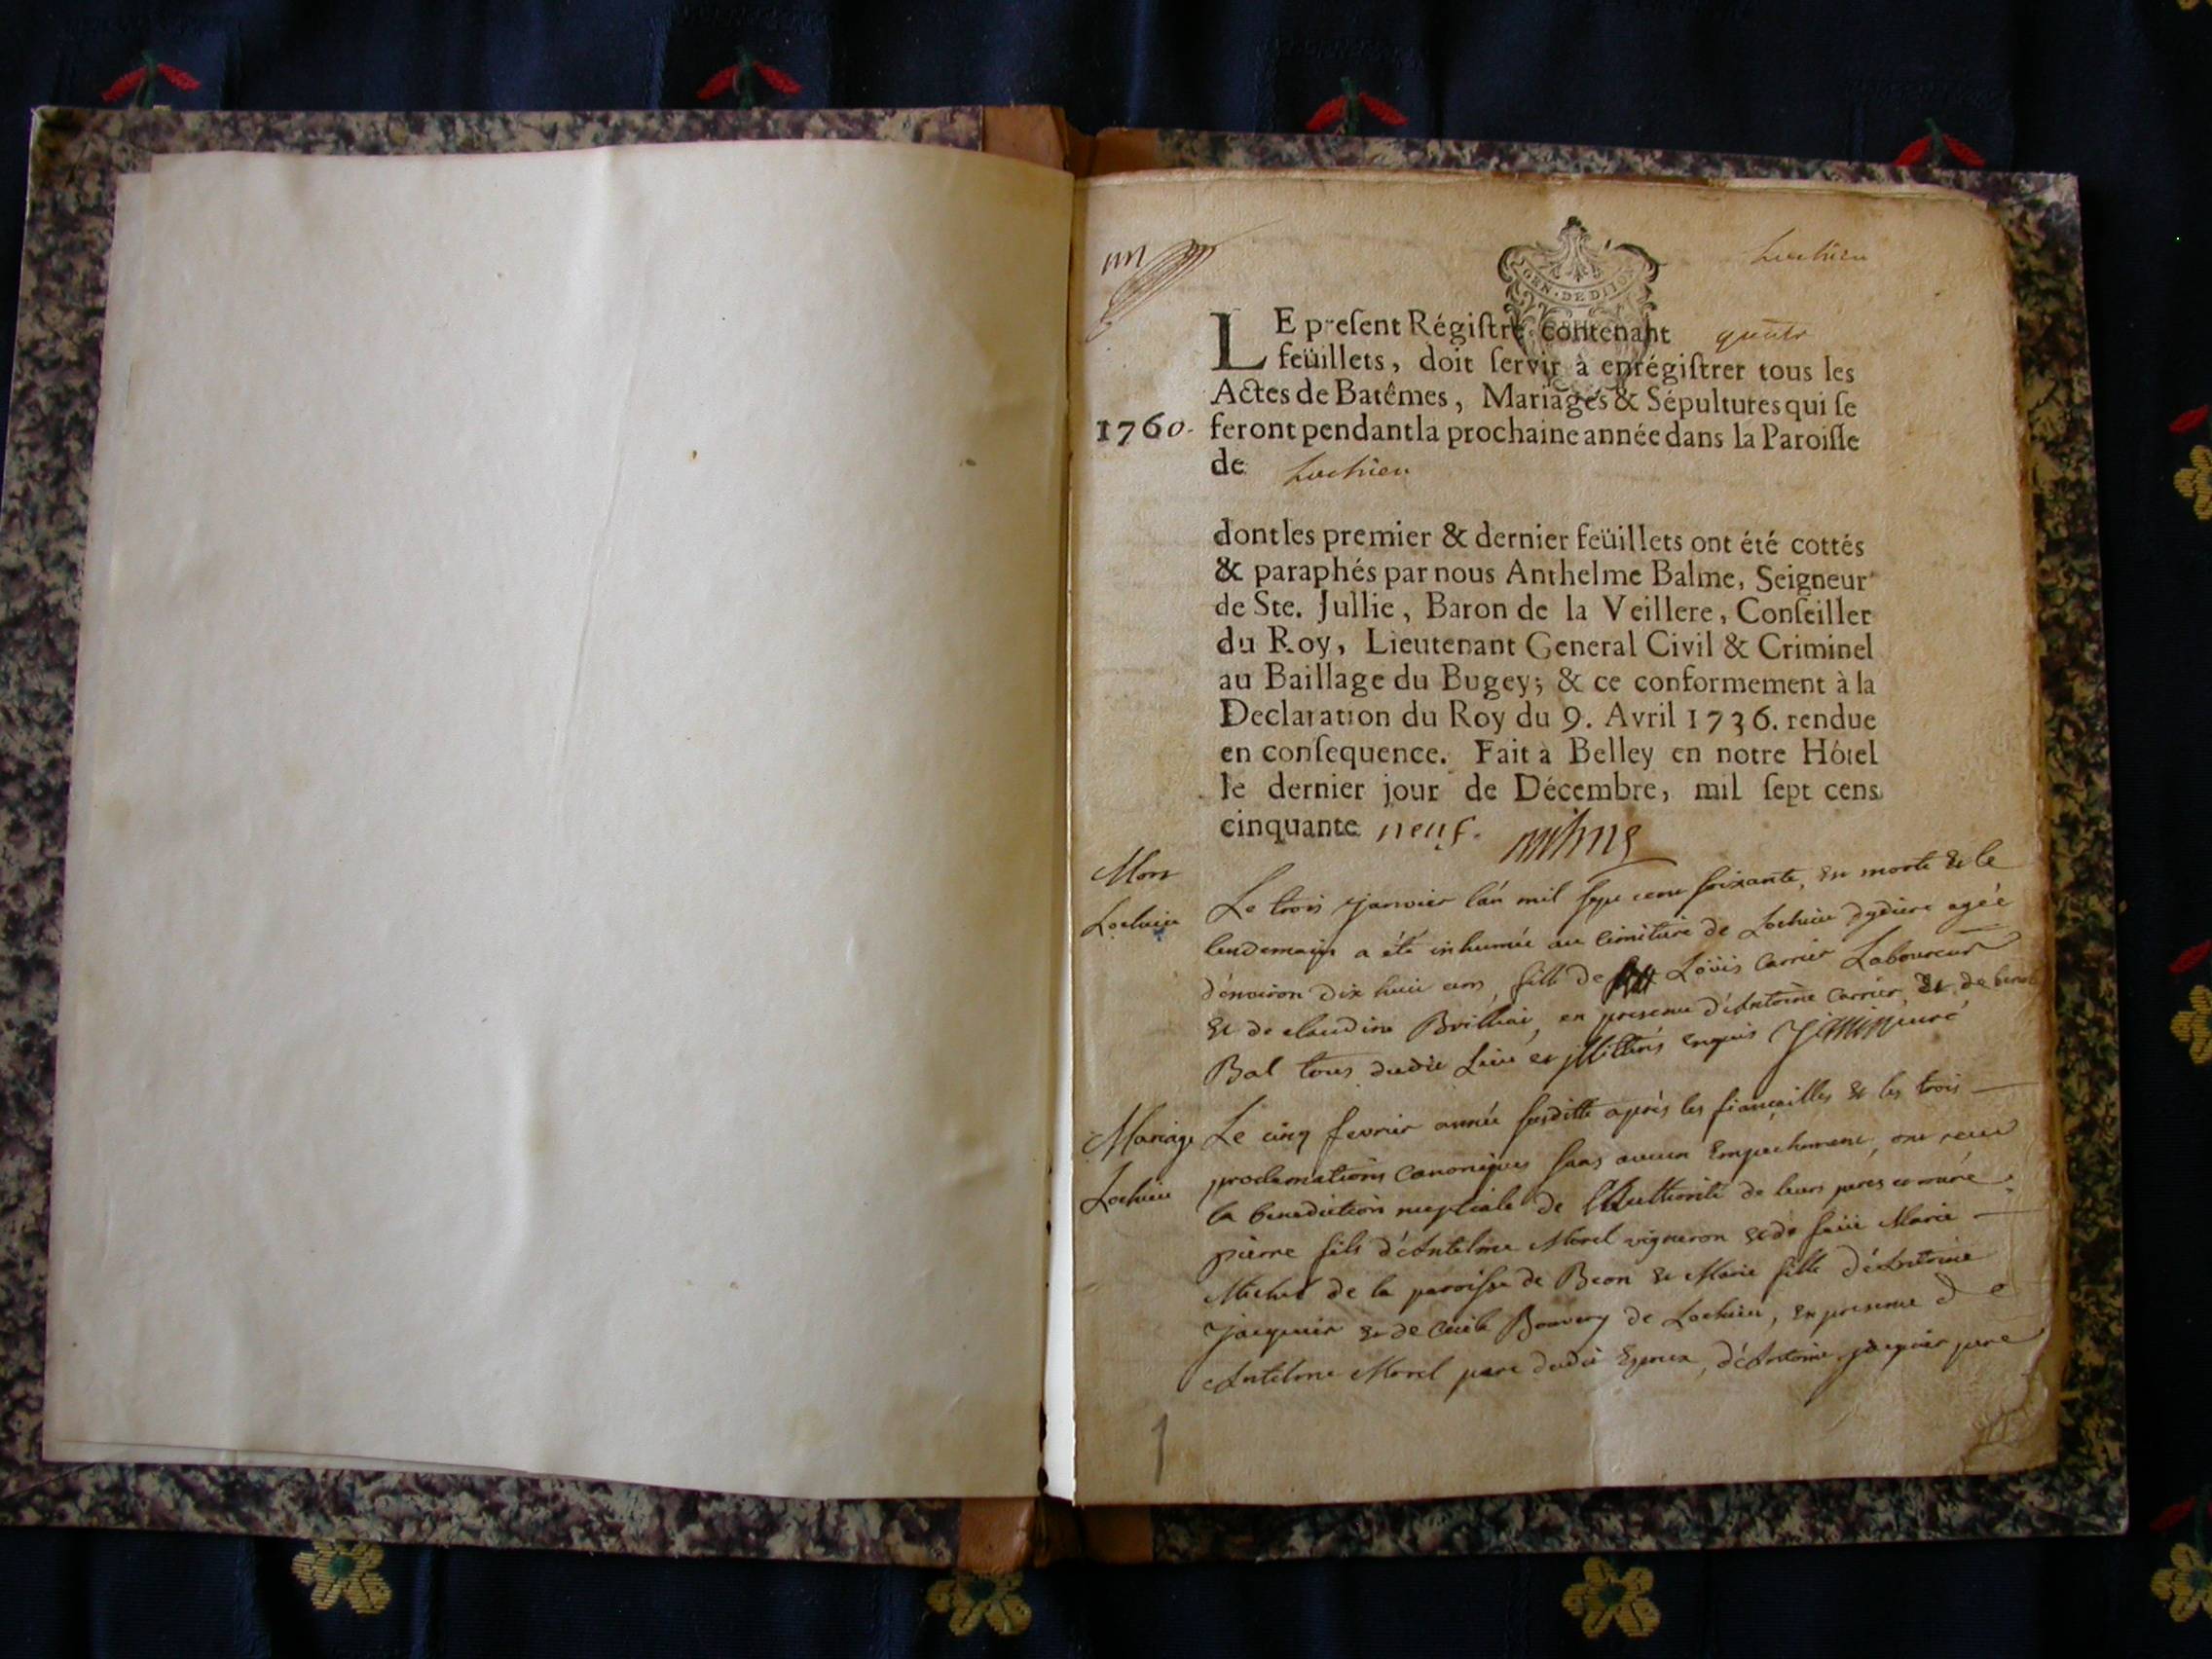 un
Lochieu
GEN. DE DIJON
LE preſent Régiſtre contenant quatr
feüillets, doit ſervir à enrégiſtrer tous les
Actes de Batêmes, Mariages & Sépultures qui ſe
1760. feront pendant la prochaine année dans la Paroiſſe
de Lochieu
dont les premier & dernier feüillets ont été cottés
& paraphés par nous Anthelme Balme, Seigneur
de Ste. Jullie, Baron de la Veillere, Conſeiller
du Roy, Lieutenant General Civil & Criminel
au Baillage du Bugey; & ce conformement à la
Declaration du Roy du 9. Avril 1736. rendue
en conſequence. Fait à Belley en notre Hôtel
le dernier jour de Décembre, mil ſept cens
cinquante neuf.
Mort
Lochieu
Le trois janvier l'an mil sept cent soixante, est morte et le
lendemain a été inhumée au cimitiere de Lochieu agée
d'environ dix huit ans, fille de Loüis Carrier Laboureur
et de claudine en presence d'Antoine Carrier, et de
Bal tous dudit Lieu et illitérés enquis curé
Mariage
Lochieu
Le cinq fevrier année susditte après les fiançailles et les trois
proclamations canoniques sans aucun Empechement, ont receu
la benediction nuptiale de l'Authorité de leurs peres et mere
pierre fils d'Antelme Morel vigneron et de feüe Marie
Michel de la paroisse de Beon et Marie fille d'Antoine
jacquier et de Bouvery de Lochieu, en presence de
Antelme Morel pere dudit Epoux, d'Antoine jacquier pere
1